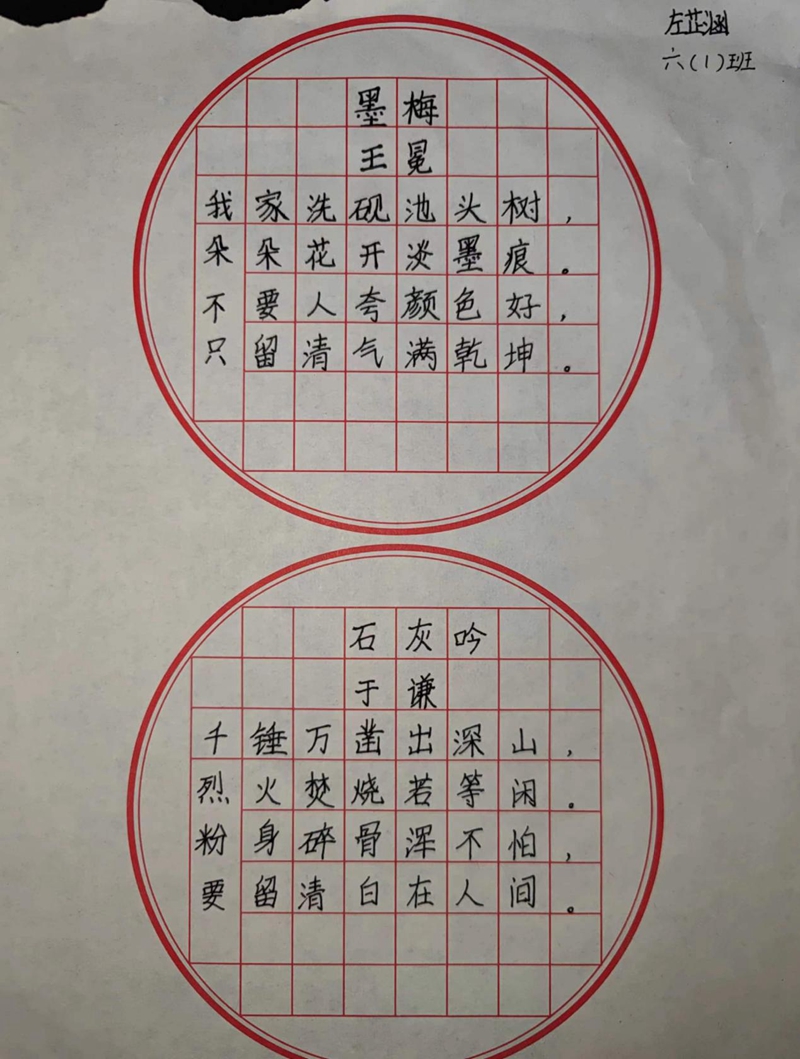 左芷涵
六(1)班
墨梅
王冕
我家洗砚池头树，
朵朵花开淡墨痕。
不要人夸颜色好，
只留清气满乾坤。
石灰吟
于谦
千锤万凿出深山，
烈火焚烧若等闲。
粉身碎骨浑不怕，
要留清白在人间。